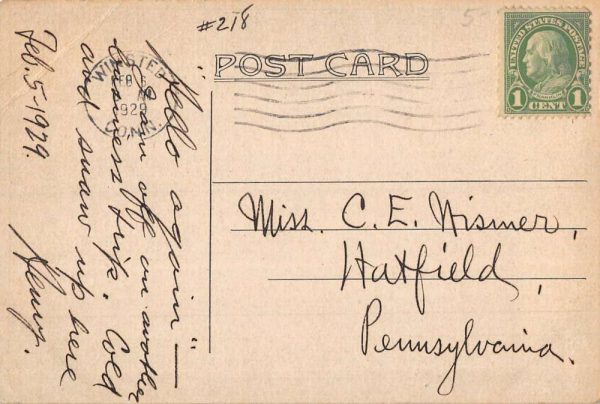 #218
5-
POST CARD
WINSTED
FEB 6
1929
CONN.
UNITED STATES POSTAGE
FRANKLIN
1 CENT 1
"Hello again" —
I am off on another
business trip. Cold
and snow up here
Henry.
Feb. 5-1929.
Miss. C. E. Nismer,
Hatfield,
Pennsylvania.